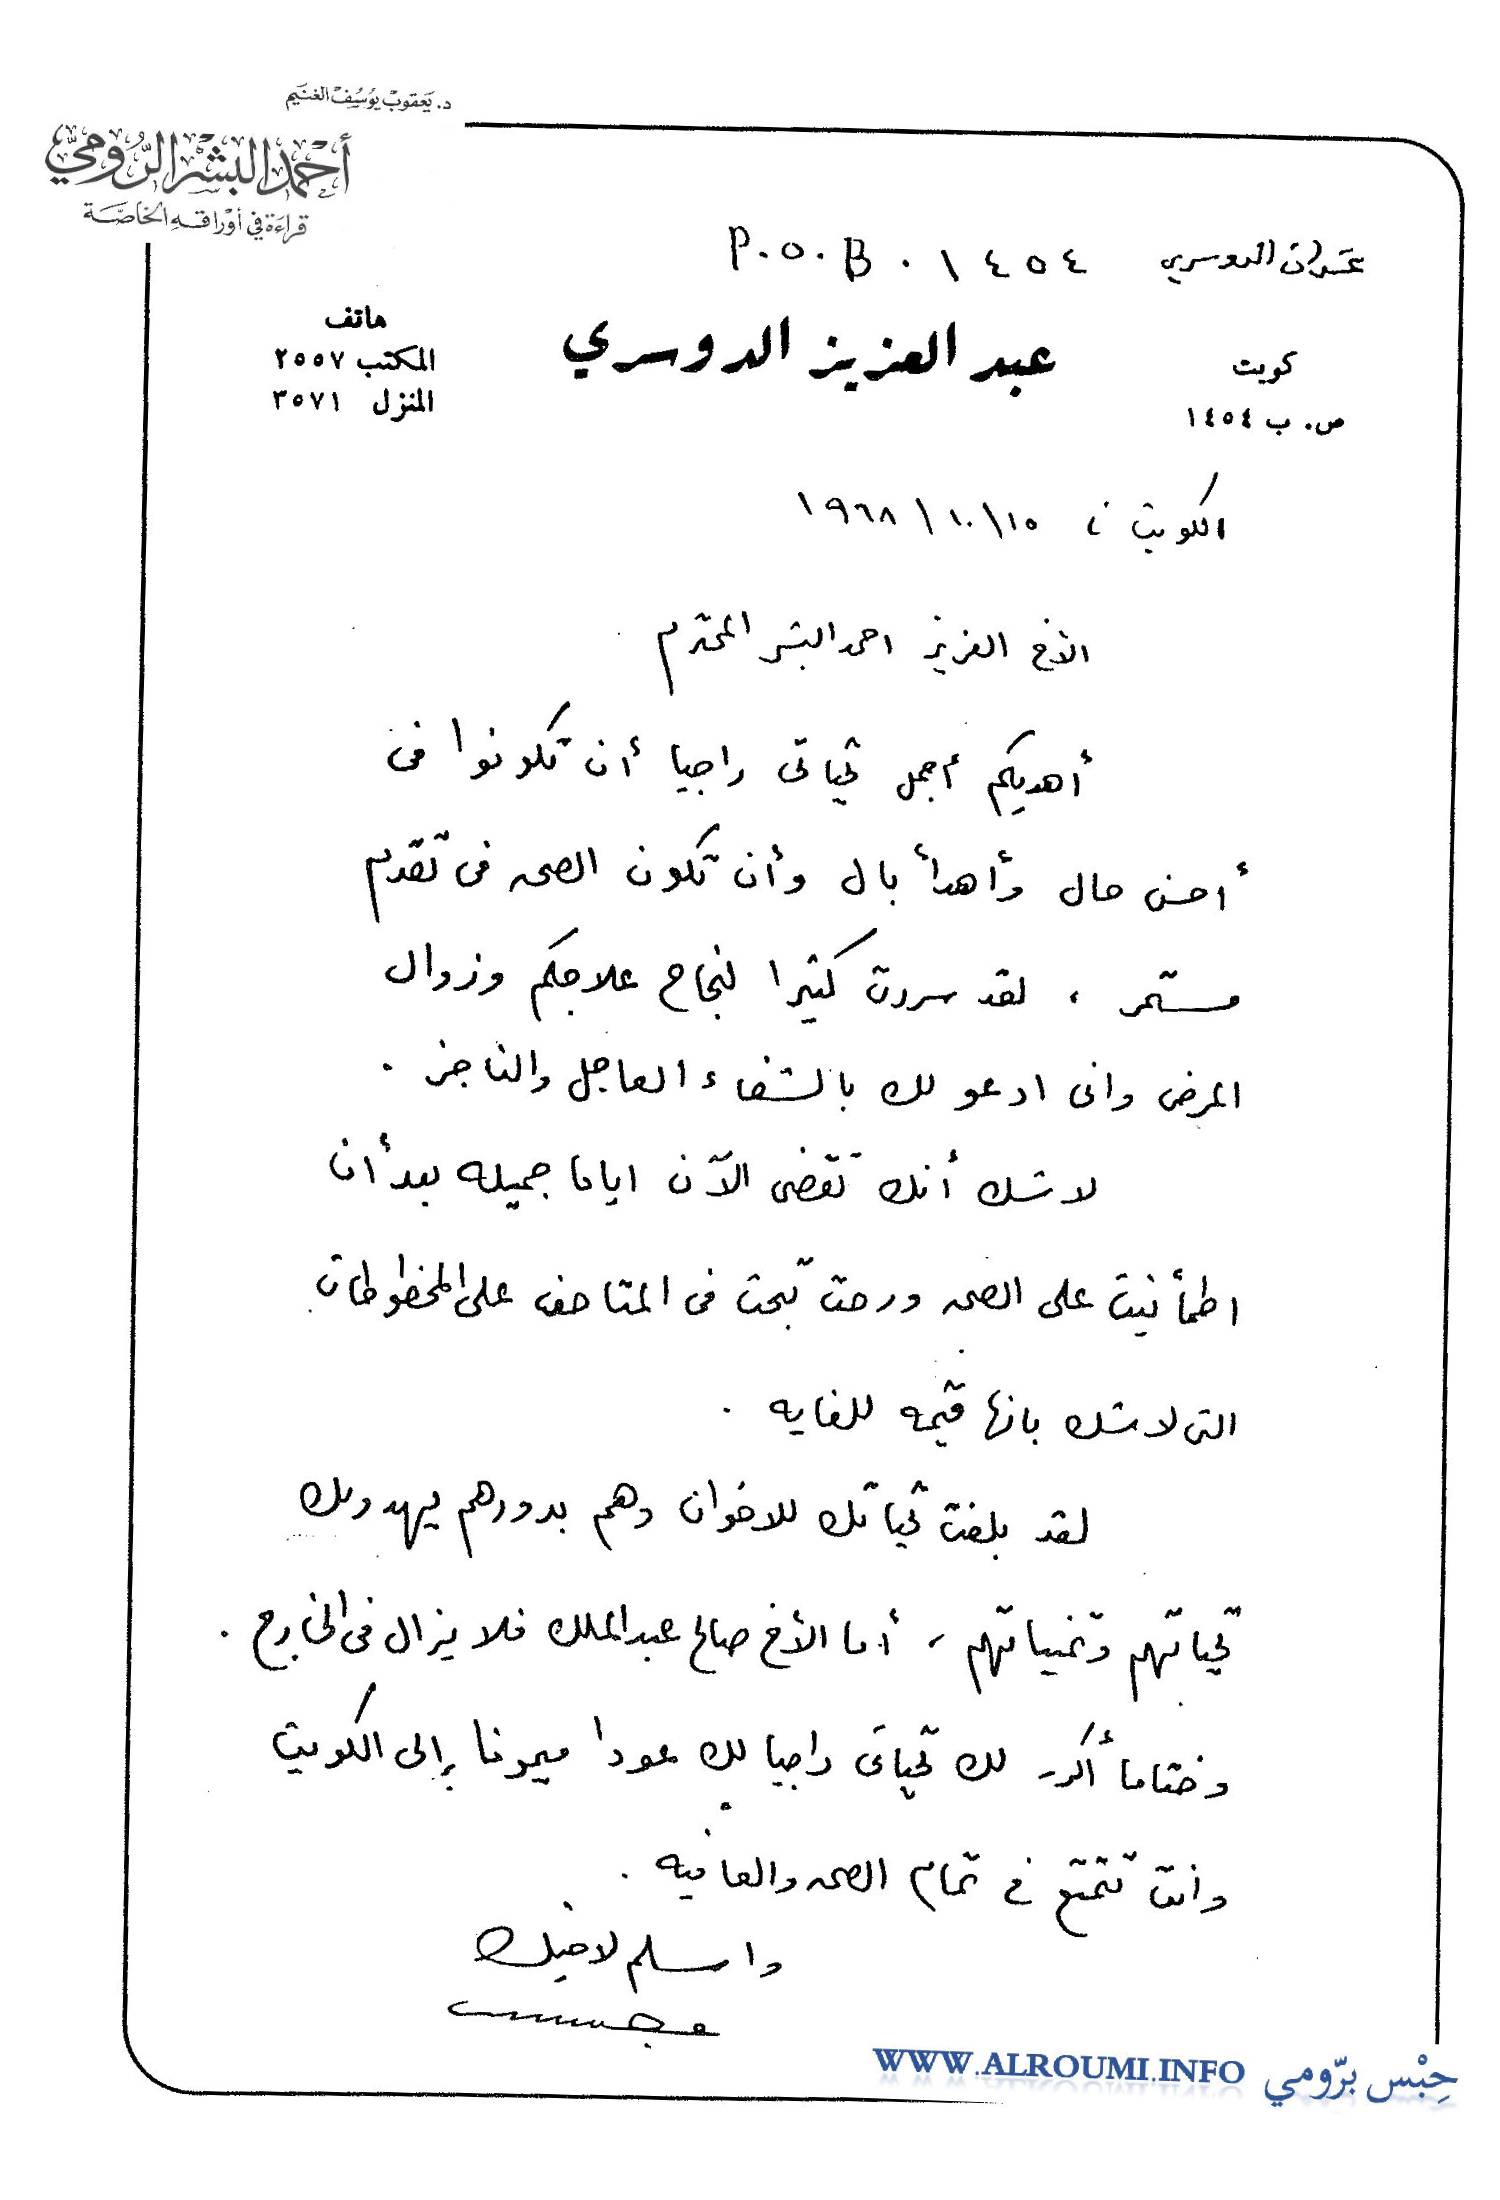 د. يَعقوبْ يوُسُف الغنيَم
أحمد البشر الرُّومي
قراءَة في أوراقه الخاصَّة
الدوسري P.O.B. ١٤٥٤
هاتف
المكتب ٢٥٥٧
المنزل ٣٥٧١
عبد العزيز الدوسري
كويت
ص. ب ١٤٥٤
الكويت في ١٥/١٠/١٩٦٨
الأخ العزيز احمد البشر المحترم
أهديكم أجمل تحياتى راجيا أن تكونوا فى
أحسن حال وأهدأ بال وأن تكون الصحه فى تقدم
مستمر ، لقد سررت كثيرا لنجاح علاجكم وزوال
المرض وانى ادعو لك بالشفاء العاجل والناجز .
لا شك أنك تقضى الآن اياما جميله بعد أن
اطمأنيت على الصحه ورحت تبحث فى المتاحف على المخطوطات
التى لا شك بانها قيمه للغايه .
لقد بلغت تحياتك للاخوان وهم بدورهم يهدونك
تحياتهم وتمنياتهم ، أما الأخ صالح عبدالملك فلا يزال فى الخارج .
وختاما أكرر لك تحياتى راجيا لك عودا ميمونا إلى الكويت
وانت تتمتع في تمام الصحه والعافيه .
واسلم لاخيك
WWW.ALROUMI.INFO حِبْس برّومي